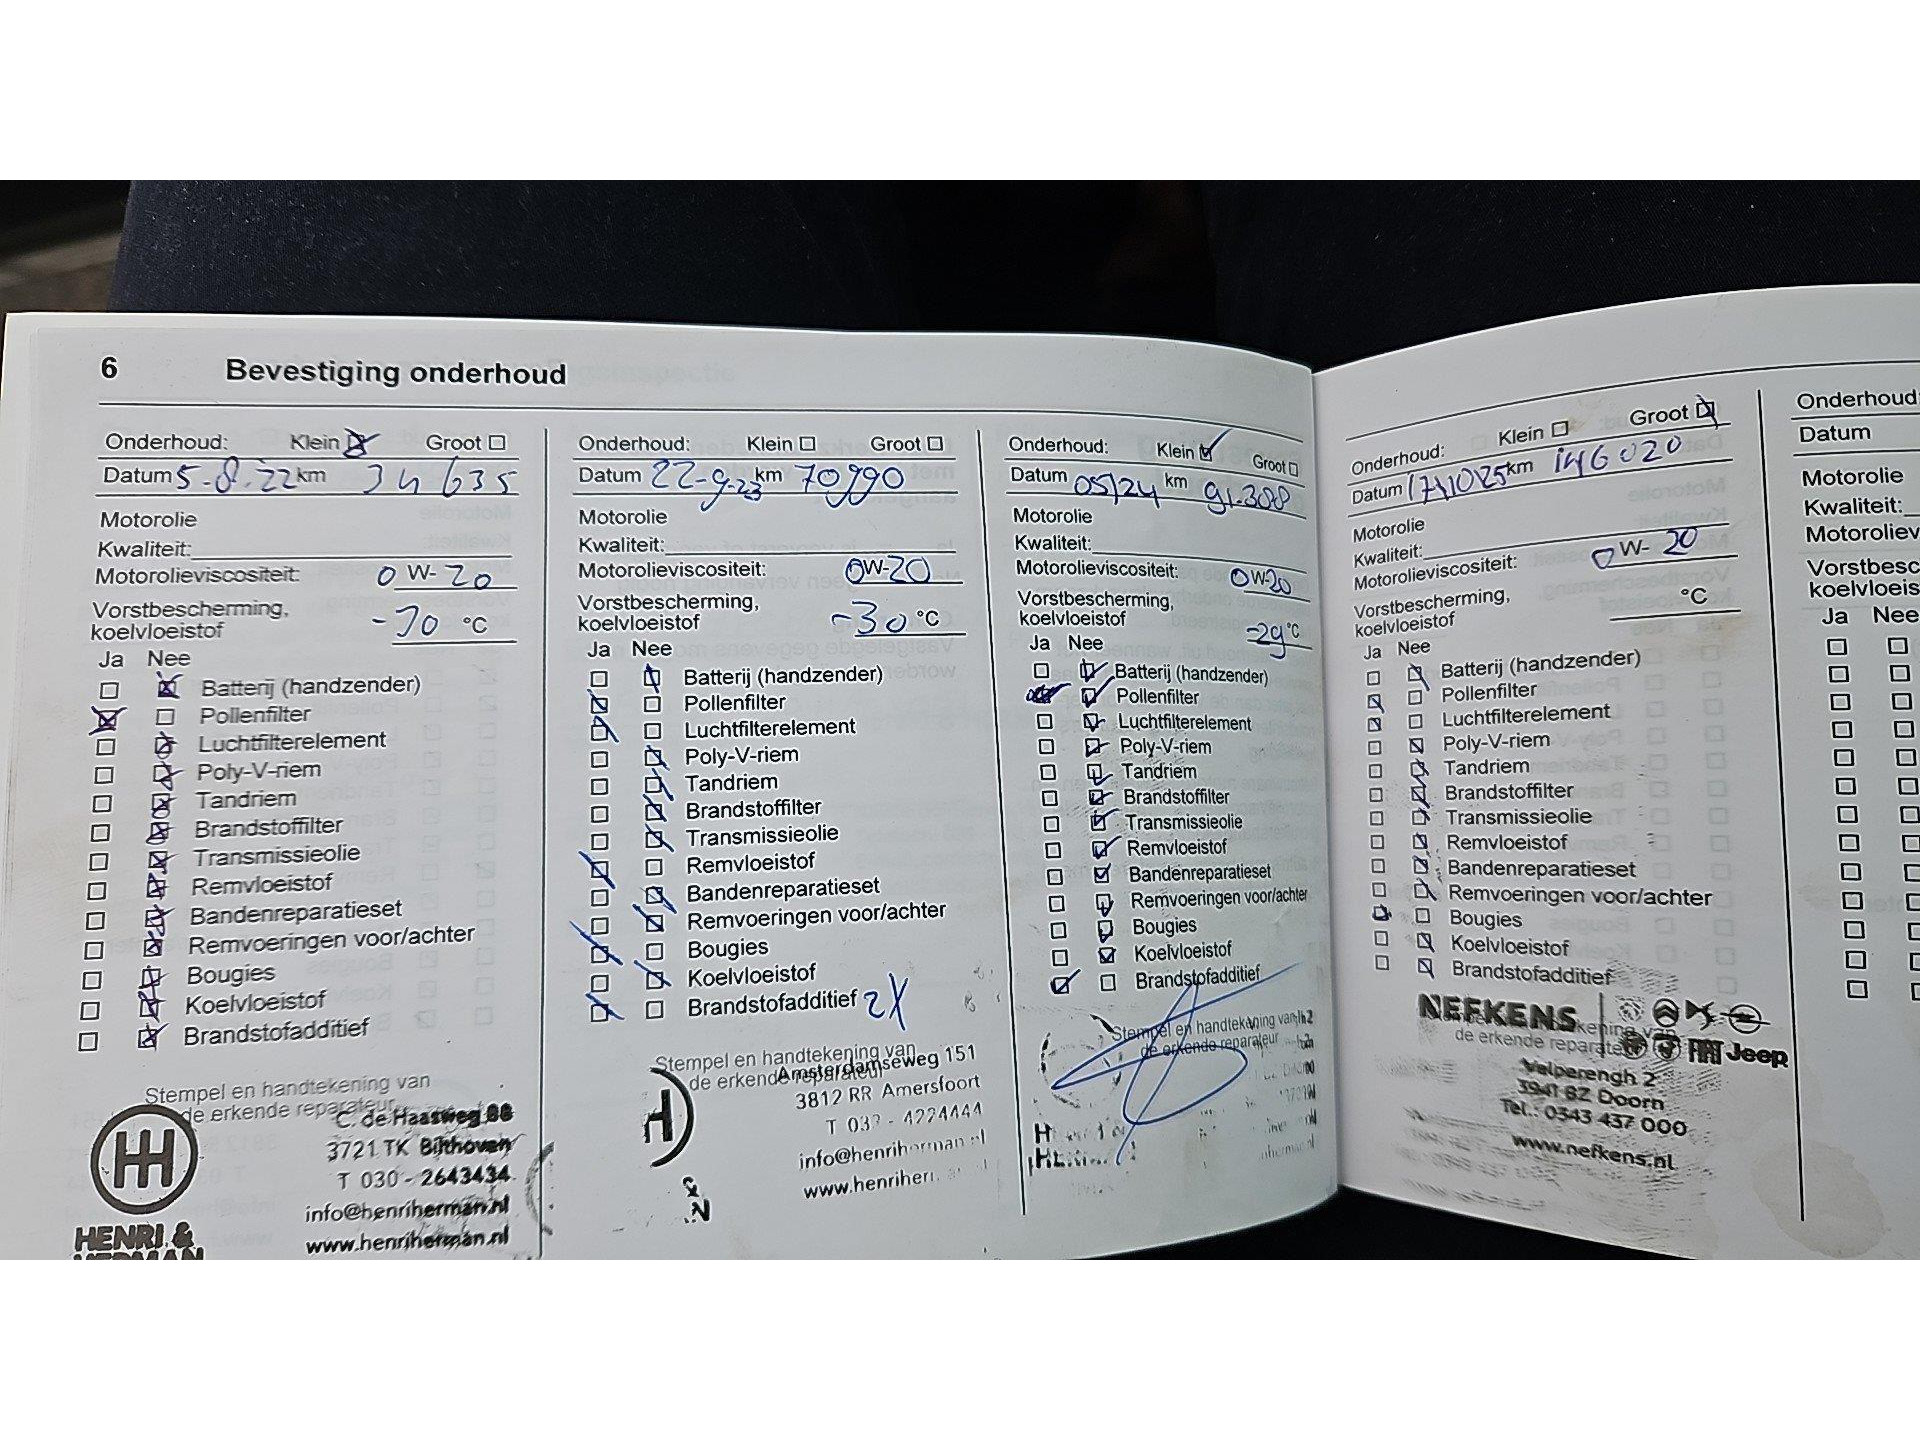 6 Bevestiging onderhoud
Onderhoud: Klein Groot
Datum 5-8-22 km 34 635
Motorolie
Kwaliteit:
Motorolieviscositeit: 0 W- 20
Vorstbescherming,
koelvloeistof -30 °C
Ja Nee
Batterij (handzender)
Pollenfilter
Luchtfilterelement
Poly-V-riem
Tandriem
Brandstoffilter
Transmissieolie
Remvloeistof
Bandenreparatieset
Remvoeringen voor/achter
Bougies
Koelvloeistof
Brandstofadditief
Stempel en handtekening van
de erkende reparateur
C. de Haasweg 88
3721 TK Bilthoven
T 030 - 2643434
info@henriherman.nl
www.henriherman.nl
HENRI &
HERMAN
Onderhoud: Klein Groot
Datum 22-9-23 km 70990
Motorolie
Kwaliteit:
Motorolieviscositeit: 0W-20
Vorstbescherming,
koelvloeistof -30 °C
Ja Nee
Batterij (handzender)
Pollenfilter
Luchtfilterelement
Poly-V-riem
Tandriem
Brandstoffilter
Transmissieolie
Remvloeistof
Bandenreparatieset
Remvoeringen voor/achter
Bougies
Koelvloeistof
Brandstofadditief 2X
Stempel en handtekening van
de erkende reparateur
Amsterdamseweg 151
3812 RR Amersfoort
T 033 - 4224444
Onderhoud: Klein Groot
Datum 05/24 km 91.388
Motorolie
Kwaliteit:
Motorolieviscositeit: 0W-20
Vorstbescherming,
koelvloeistof -29 °C
Ja Nee
Batterij (handzender)
Pollenfilter
Luchtfilterelement
Poly-V-riem
Tandriem
Brandstoffilter
Transmissieolie
Remvloeistof
Bandenreparatieset
Remvoeringen voor/achter
Bougies
Koelvloeistof
Brandstofadditief
Stempel en handtekening van
de erkende reparateur
Onderhoud: Klein Groot
Datum 17/10/25 km 146020
Motorolie
Kwaliteit:
Motorolieviscositeit: 0 W- 20
Vorstbescherming,
koelvloeistof °C
Ja Nee
Batterij (handzender)
Pollenfilter
Luchtfilterelement
Poly-V-riem
Tandriem
Brandstoffilter
Transmissieolie
Remvloeistof
Bandenreparatieset
Remvoeringen voor/achter
Bougies
Koelvloeistof
Brandstofadditief
NEFKENS
de erkende reparateur
Jeep
Velperengh 2
3941 BZ Doorn
Tel.: 0343 437 000
www.nefkens.nl
Onderhoud
Datum
Motorolie
Kwaliteit:
Motoroliev
Vorstbesc
koelvloeis
Ja Nee